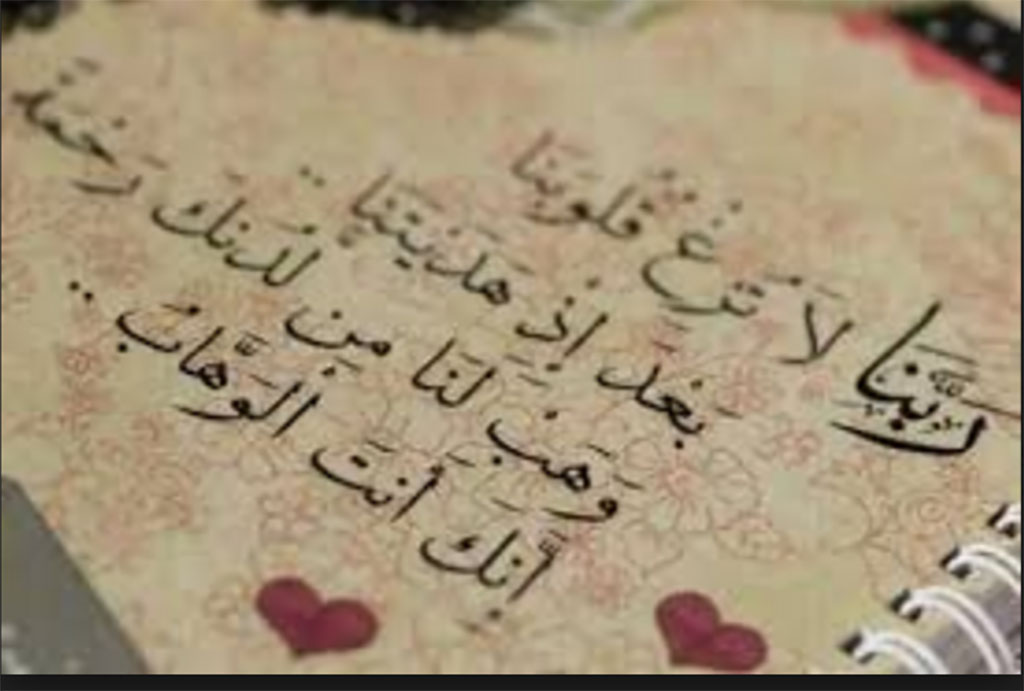 ربَّنا لَا تُزِغْ قُلُوبَنَا
بَعْدَ إِذْ هَدَيْتَنَا ..
وَهَبْ لَنَا مِن لَّدُنكَ رَحْمَةً
إِنَّكَ أَنتَ الْوَهَّابُ ..